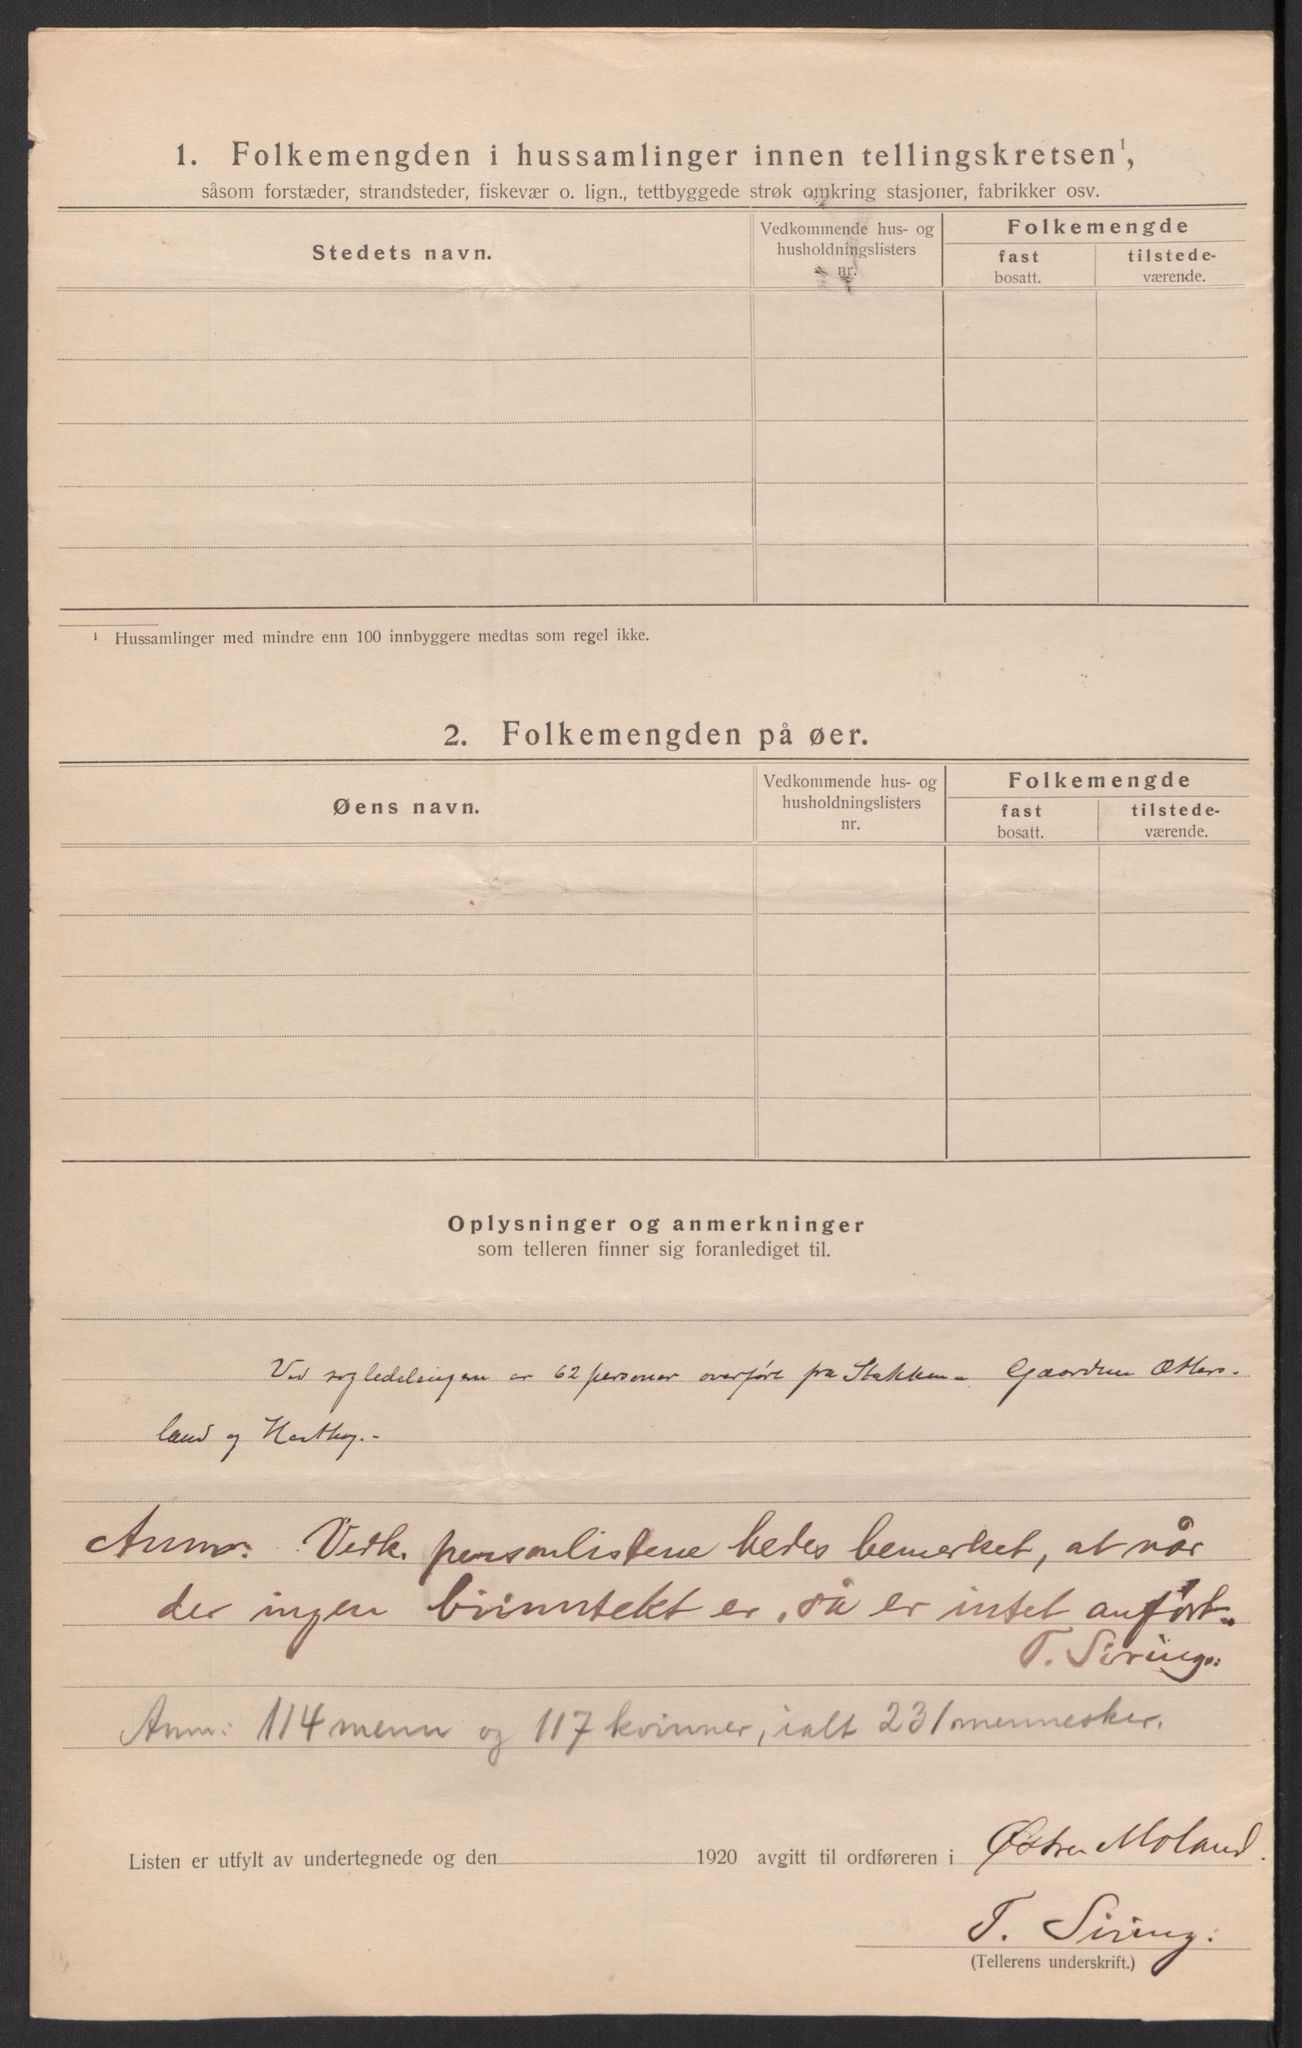 1. Folkemengden i hussamlinger innen tellingskretsen¹,
såsom forstæder, strandsteder, fiskevær o. lign., tettbyggede strøk omkring stasjoner, fabrikker osv.
Stedets navn.
Vedkommende hus- og
husholdningslisters
nr.
Folkemengde
fast
bosatt.
tilstede-
værende.
¹ Hussamlinger med mindre enn 100 innbyggere medtas som regel ikke.
2. Folkemengden på øer.
Øens navn.
Vedkommende hus- og
husholdningslisters
nr.
Folkemengde
fast
bosatt.
tilstede-
værende.
Oplysninger og anmerkninger
som telleren finner sig foranlediget til.
Ved er 62 personer overført fra Stakken-
land og
Anm: Vedk. personlistene bedes bemerket, at når
der ingen biinntekt er, så er intet anført.
T. Siring:
Anm: 114 menn og 117 kvinner, ialt 231 mennesker.
Listen er utfylt av undertegnede og den 1920 avgitt til ordføreren i Østre Moland.
T. Siring:
(Tellerens underskrift.)